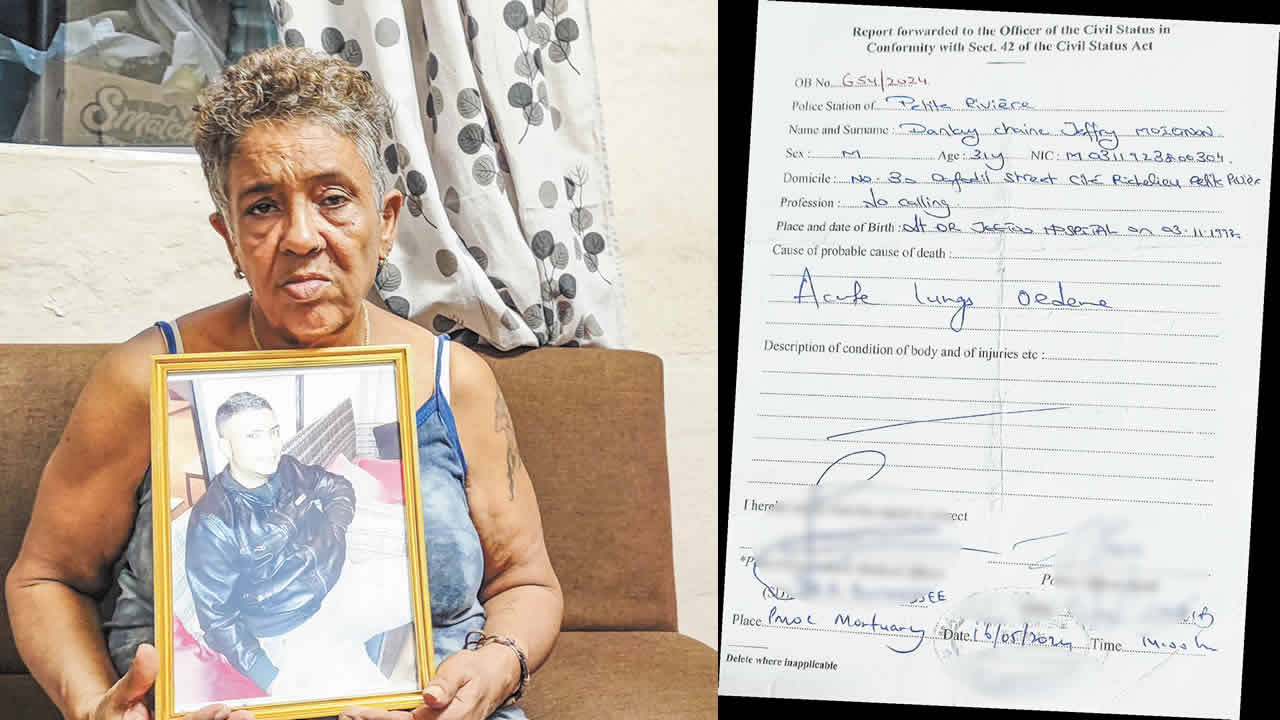 Smatch
Report forwarded to the Officer of the Civil Status in
Conformity with Sect. 42 of the Civil Status Act
OB No. 654/2024
Police Station of Petite Rivière
Name and Surname : Chaine Jeffry
Sex : M Age : 31y NIC:
Domicile : No. Daffodil Street Cité Richelieu Petite Rivière
Profession : No calling
Place and date of Birth : At DR HOSPITAL on 03.11.1992
Cause of probable cause of death :
Acute lungs oedema
Description of condition of body and of injuries etc :
I here rect
*P
EE
Place PMOC Mortuary Date 16/05/2024 Time 14.00h
Delete where inapplicable